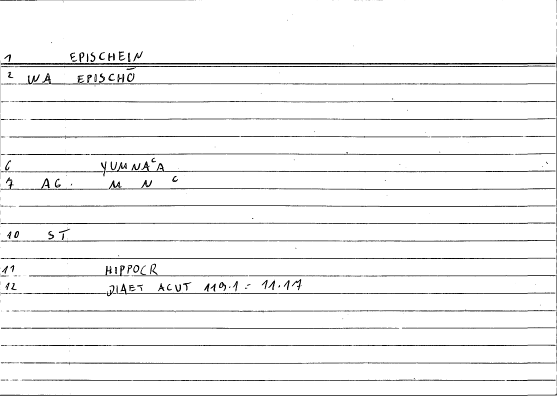 1 EPISCHEIN
2 WA EPISCHŌ
6 YUMNAᶜA
7 AG. M N ᶜ
10 ST
11 HIPPOCR
12 DIAET ACUT 119.1 = 11.17